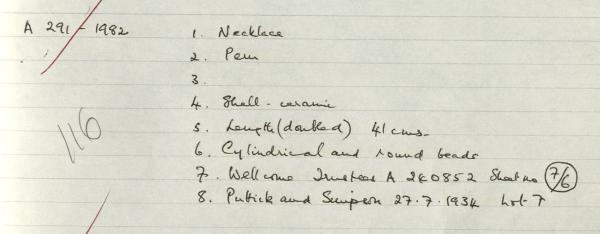 A 291 - 1982 1. Necklace
2. Peru
3.
4. Shell - ceramic
5. Length (doubled) 41 cms.
116
6. Cylindrical and round beads
7. Wellcome Trustees A 240852 Sheet no 7/6
8. Puttick and Simpson 27.7.1934 Lot 7